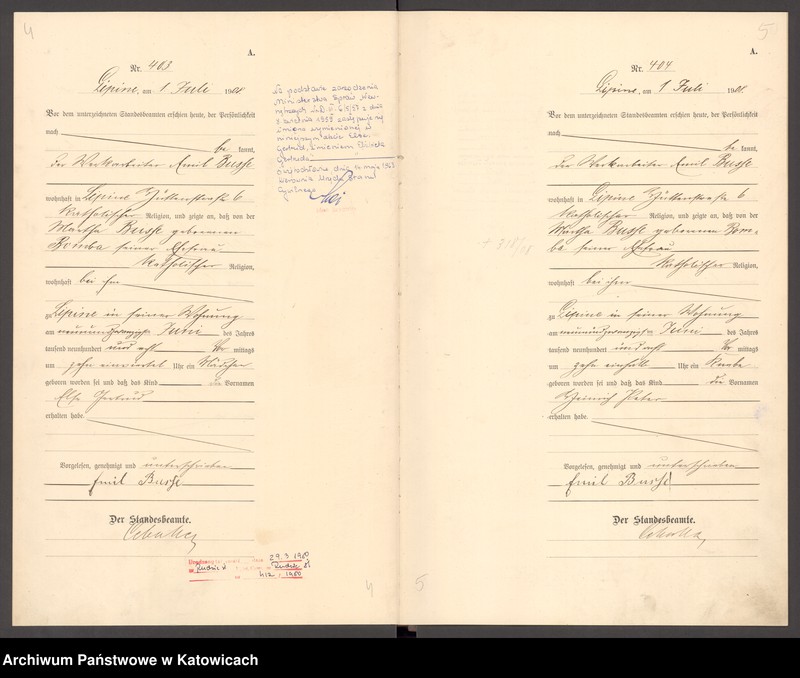 4
A.
Nr. 403
Lipine, am 1 Juli 1908
Vor dem unterzeichneten Standesbeamten erschien heute, der Persönlichkeit
nach
be kannt,
der Werkarbeiter Emil Busse
wohnhaft in Lipine Hüttenstraße 6
Katholischer Religion, und zeigte an, daß von der
Martha Busse geborenen
Bomba seiner Ehefrau
Katholischer Religion,
wohnhaft bei ihm
zu Lipine in seiner Wohnung
am neunundzwanzigsten Juni des Jahres
tausend neunhundert und acht Vor mittags
um zehn einviertel Uhr ein Mädchen
geboren worden sei und daß das Kind die Vornamen
Else Gertrud
erhalten habe.
Vorgelesen, genehmigt und unterschrieben
Emil Busse
Der Standesbeamte.
Na podstawie zarządzenia
Ministerstwa Spraw
z dnia
imiona wymienionej w
niniejszym akcie Else
Gertrud, imieniem
Gertruda
29.3 1980
412 1980
4
5
A.
Nr. 404
Lipine, am 1 Juli 1908
Vor dem unterzeichneten Standesbeamten erschien heute, der Persönlichkeit
nach
be kannt,
der Werkarbeiter Emil Busse
wohnhaft in Lipine Hüttenstraße 6
Katholischer Religion, und zeigte an, daß von der
Martha Busse geborenen Bom-
ba seiner Ehefrau
Katholischer Religion,
wohnhaft bei ihm
zu Lipine in seiner Wohnung
am neunundzwanzigsten Juni des Jahres
tausend neunhundert und acht Vor mittags
um zehn einhalb Uhr ein Knabe
geboren worden sei und daß das Kind die Vornamen
Heinrich Peter
erhalten habe.
Vorgelesen, genehmigt und unterschrieben
Emil Busse
Der Standesbeamte.
5
Archiwum Państwowe w Katowicach